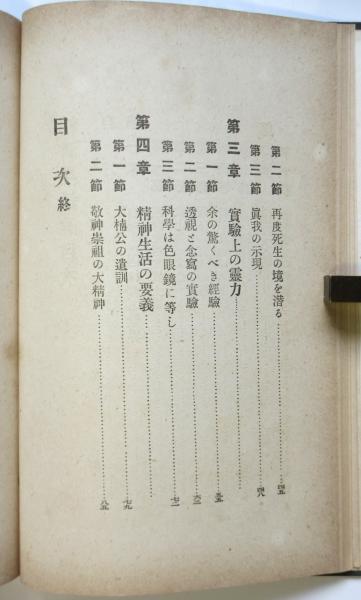 第二節 再度死生の境を潜る……四五
第三節 眞我の示現……四八
第三章 實驗上の靈力
第一節 余の驚くべき經驗……五五
第二節 透視と念寫の實驗……六三
第三節 科學は色眼鏡に等し……七二
第四章 精神生活の要義
第一節 大楠公の遺訓……七九
第二節 敬神崇祖の大精神……八五
目次終